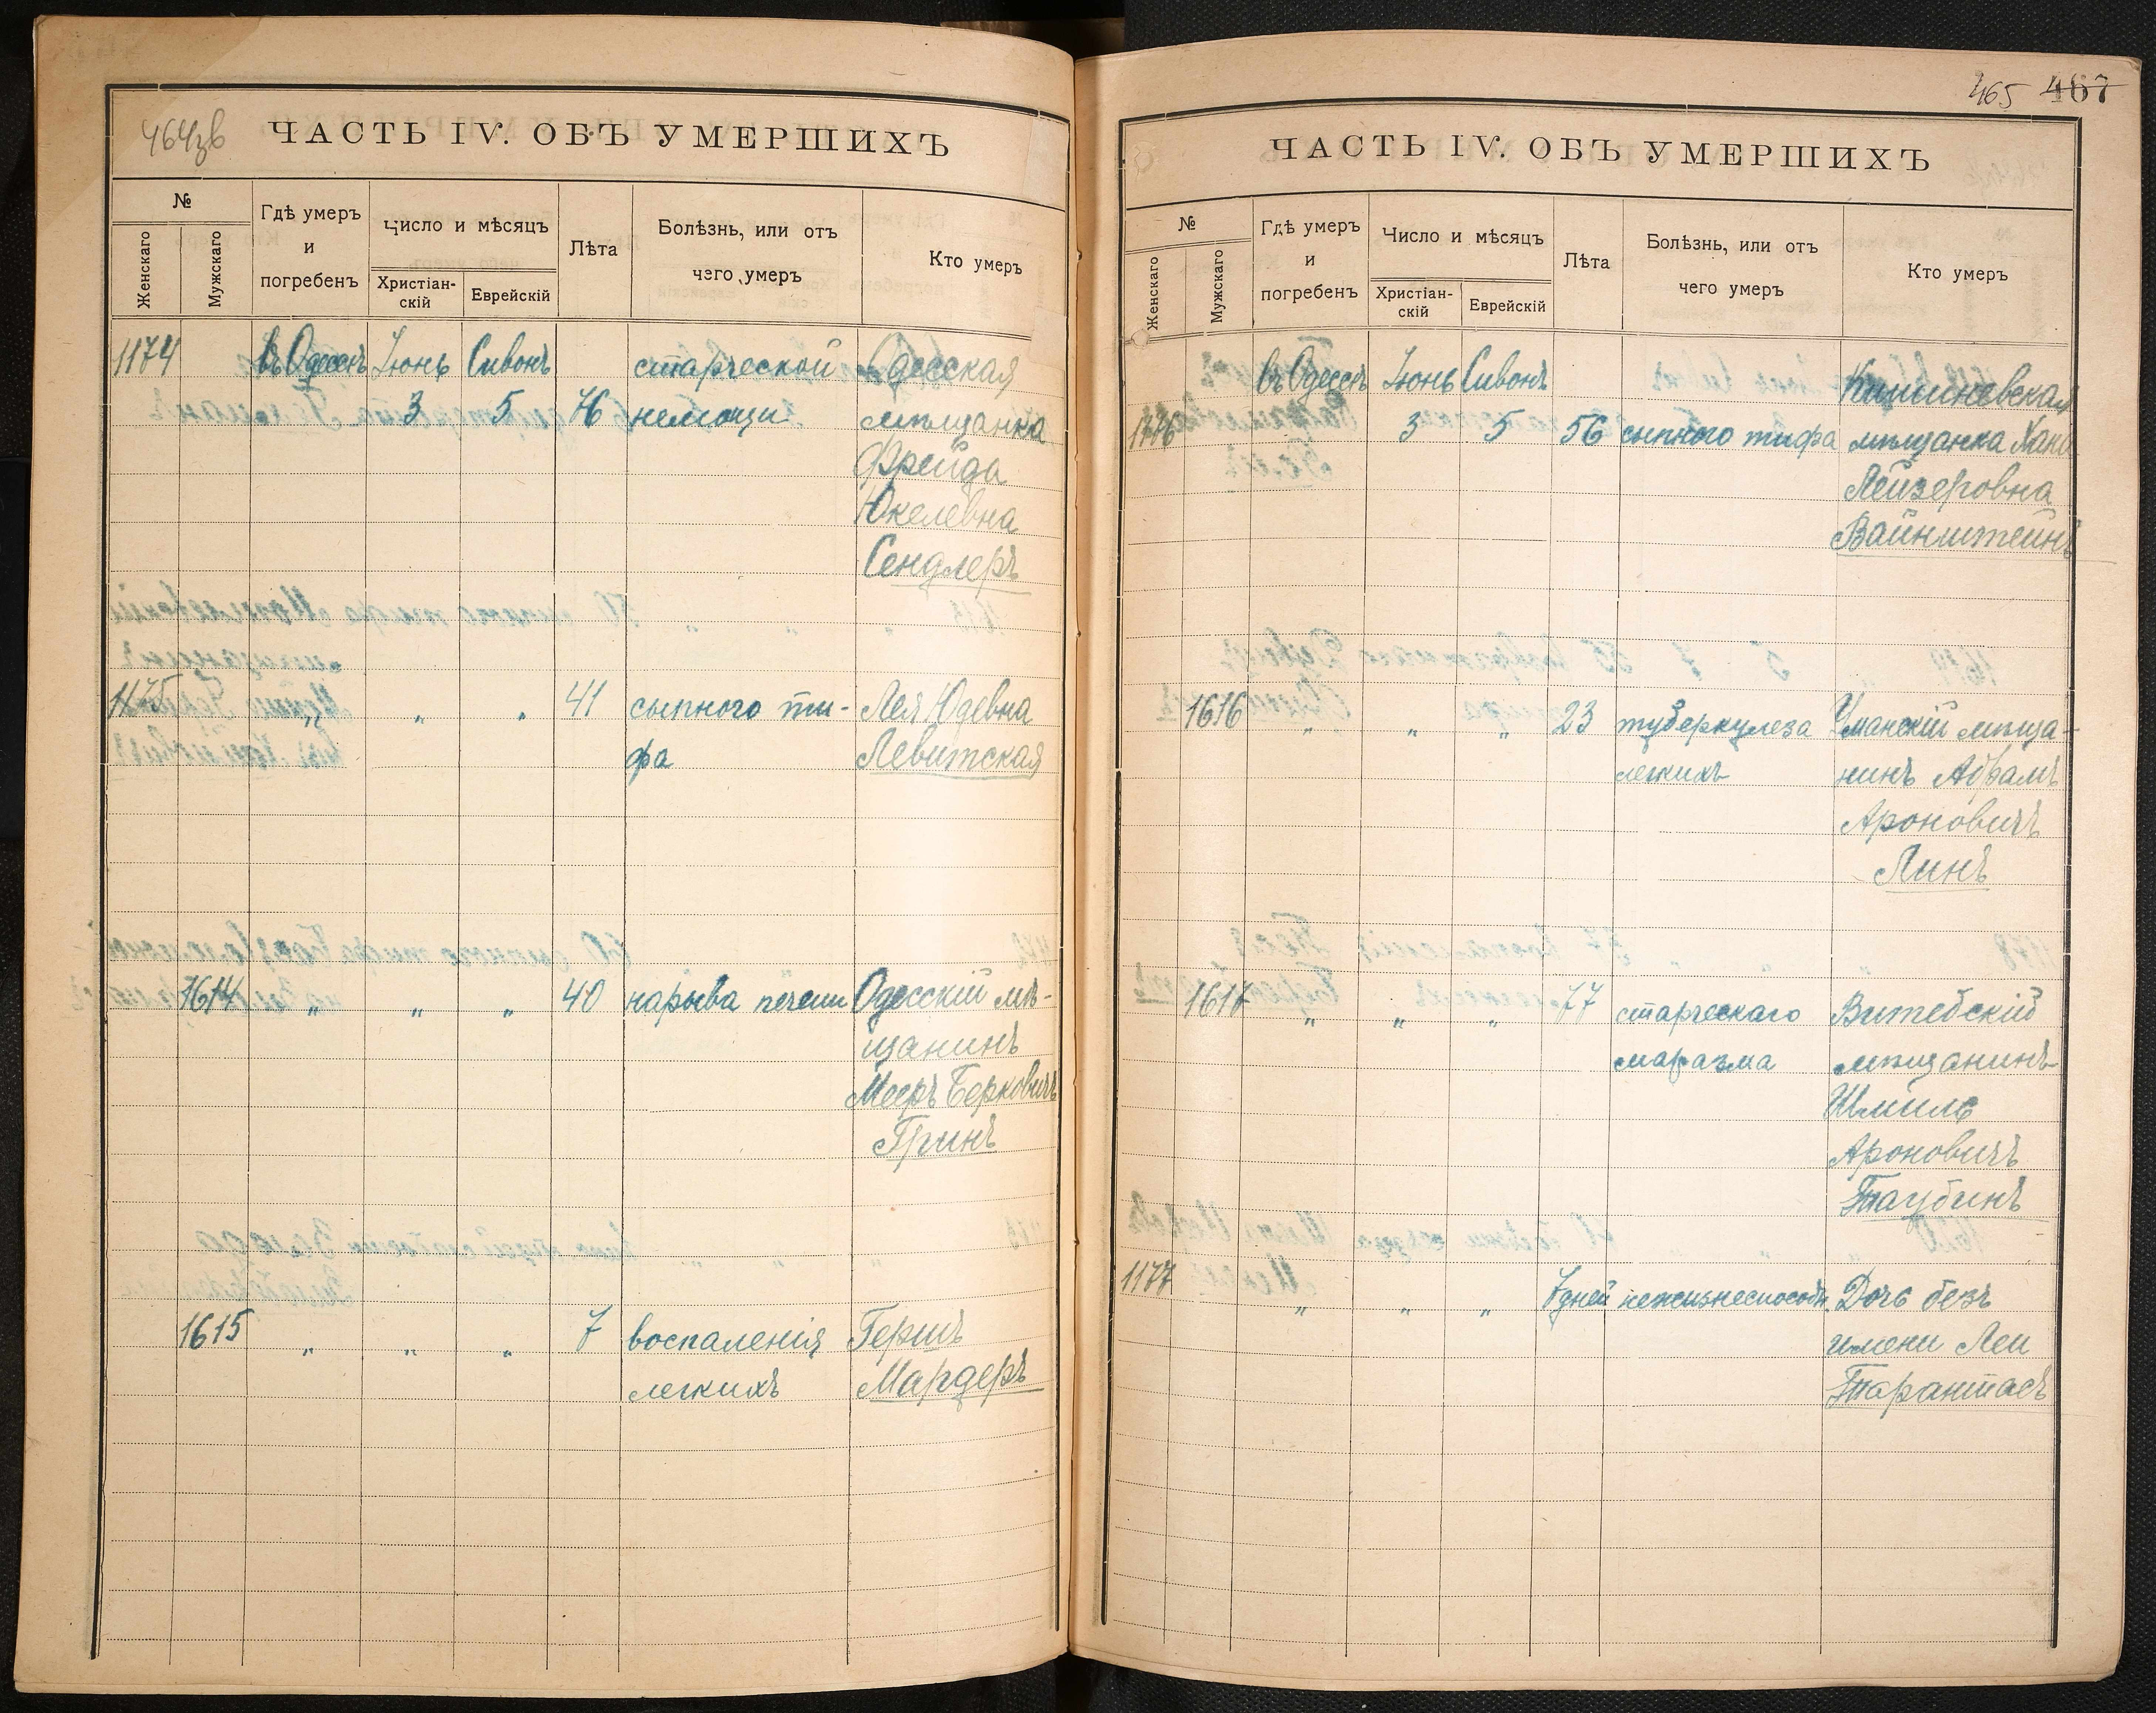 464зв
ЧАСТЬ IV. ОБЪ УМЕРШИХЪ
№
Женскаго
Мужскаго
Гдѣ умеръ
и
погребенъ
Число и мѣсяцъ
Христіан-
скій
Еврейскій
Лѣта
Болѣзнь, или отъ
чего умеръ
Кто умеръ
1174 въ Одессѣ Іюнь Сивонъ старческой Одесская
3 5 76 немощи мѣщанка
Фрейда
Юкелевна
Сендлеръ
1175 „ „ „ 41 сыпного ти- Лея Юдевна
фа Левитская
1614 „ „ „ 40 нарыва печени Одесскій мѣ-
щанинъ
Мееръ Берковичъ
Гринъ
1615 „ „ „ 7 воспаленія Гершъ
легкихъ Мардеръ
465 467
ЧАСТЬ IV. ОБЪ УМЕРШИХЪ
№
Женскаго
Мужскаго
Гдѣ умеръ
и
погребенъ
Число и мѣсяцъ
Христіан-
скій
Еврейскій
Лѣта
Болѣзнь, или отъ
чего умеръ
Кто умеръ
въ Одессѣ Іюнь Сивонъ Кишиневская
1176 3 5 56 сыпного тифа мѣщанка Хана
Лейзеровна
Вайнштейнъ
1616 „ „ „ 23 туберкулеза Уманскій мѣща-
легкихъ нинъ Абрамъ
Ароновичъ
Линъ
1617 „ „ „ 77 старческаго Витебскій
маразма мѣщанинъ
Шмиль
Ароновичъ
Таубинъ
1177 „ „ „ 7 дней нежизнеспособн. Дочь безъ
имени Леи
Тарантасъ